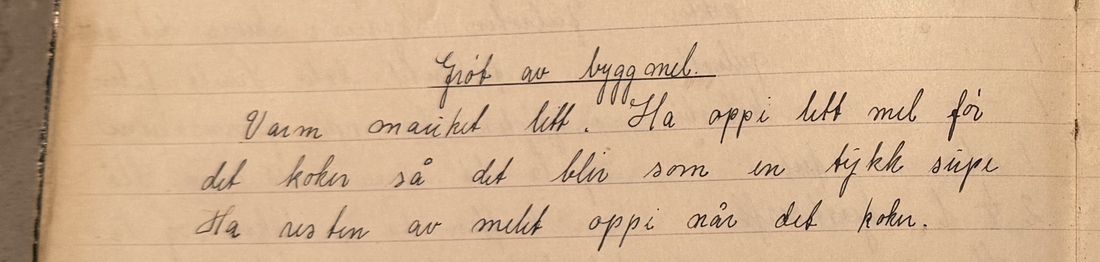 Grøt av byggmel.
Varm mauket litt. Ha oppi litt mel før
det koker så det blir som en tykk supe
Ha resten av melet oppi når det koker.